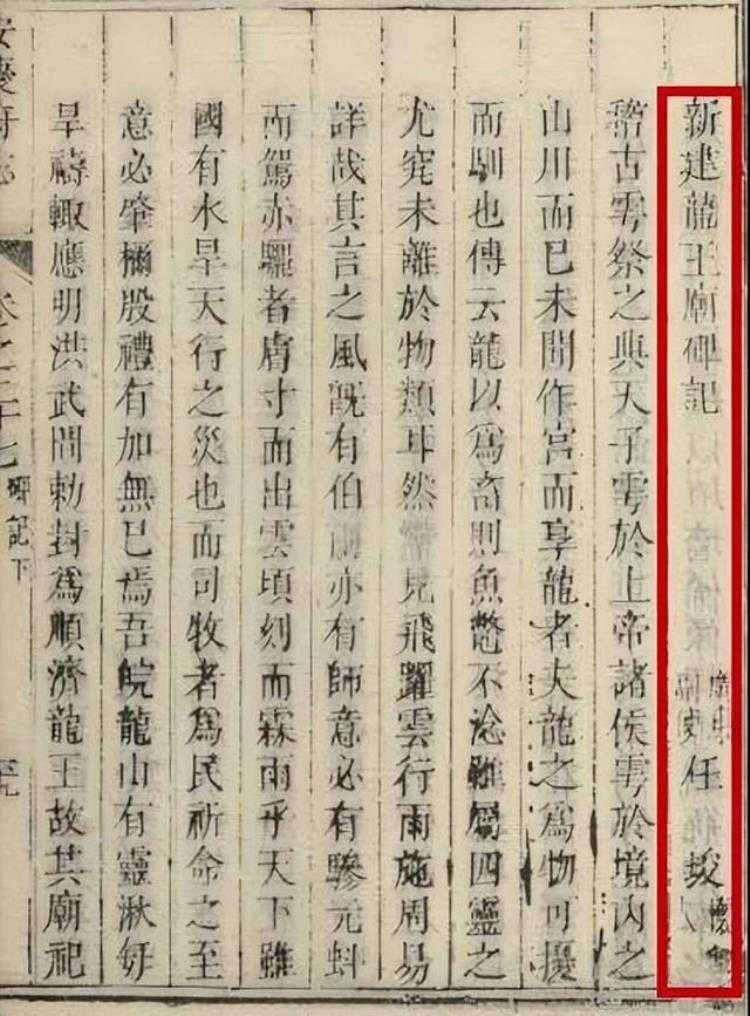 新建龍王廟碑記 史任 埈 懷
稽古雩祭之典天子雩於上帝諸侯雩於境內之
山川而已未聞作宮而享龍者夫龍之爲物可擾
而馴也傳云龍以爲畜則魚鱉不淰雖屬四靈之
尤究未離於物類耳然嘗見飛躍雲行雨施周易
詳哉其言之風旣有伯雨亦有師意必有驂元蚪
而駕赤驪者膚寸而出雲頃刻而霖雨乎天下雖
國有水旱天行之災也而司牧者爲民祈命之至
意必肇穪殷禮有加無已焉吾皖龍山有靈湫每
旱禱輒應明洪武間勅封爲順濟龍王故其廟祀
安慶府志 卷之二十七 碑記下